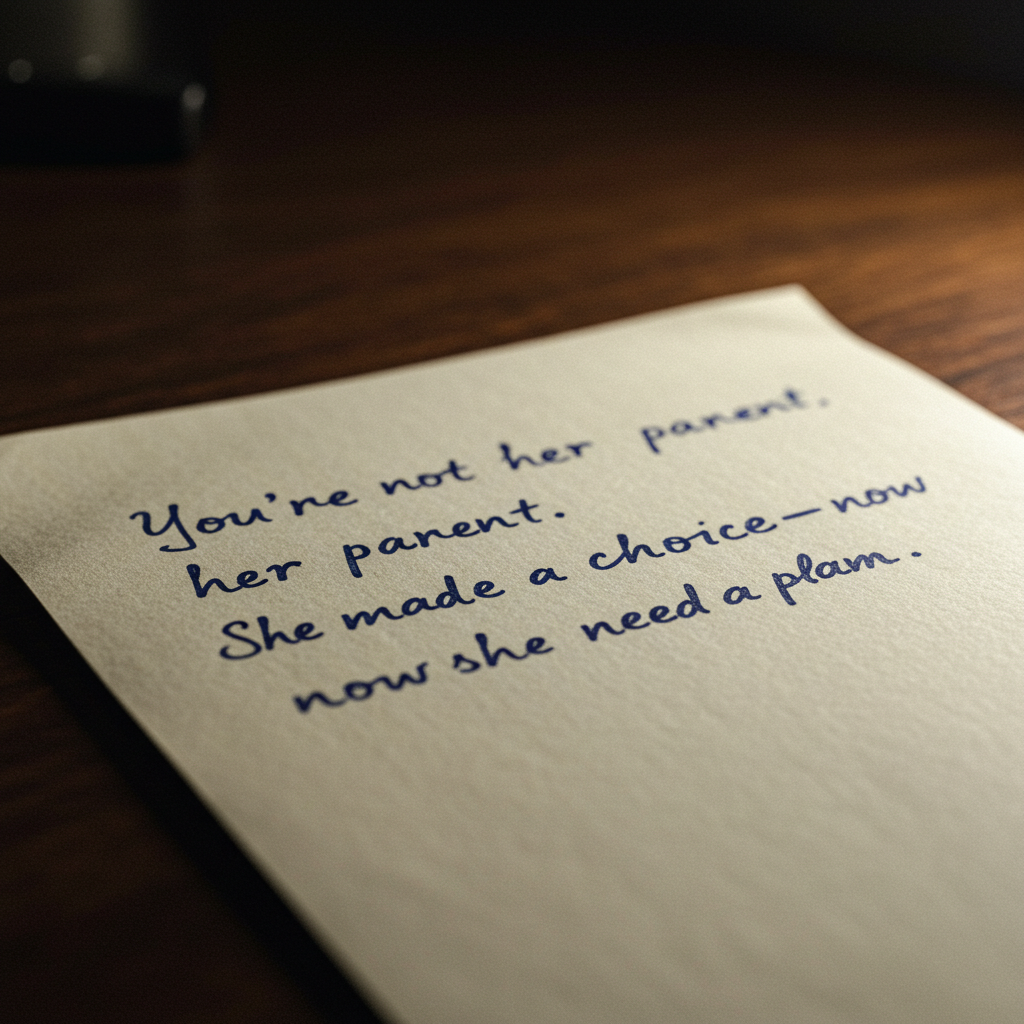 You're not her parent.
her parent.
She made a choice—now
now she need a plam.